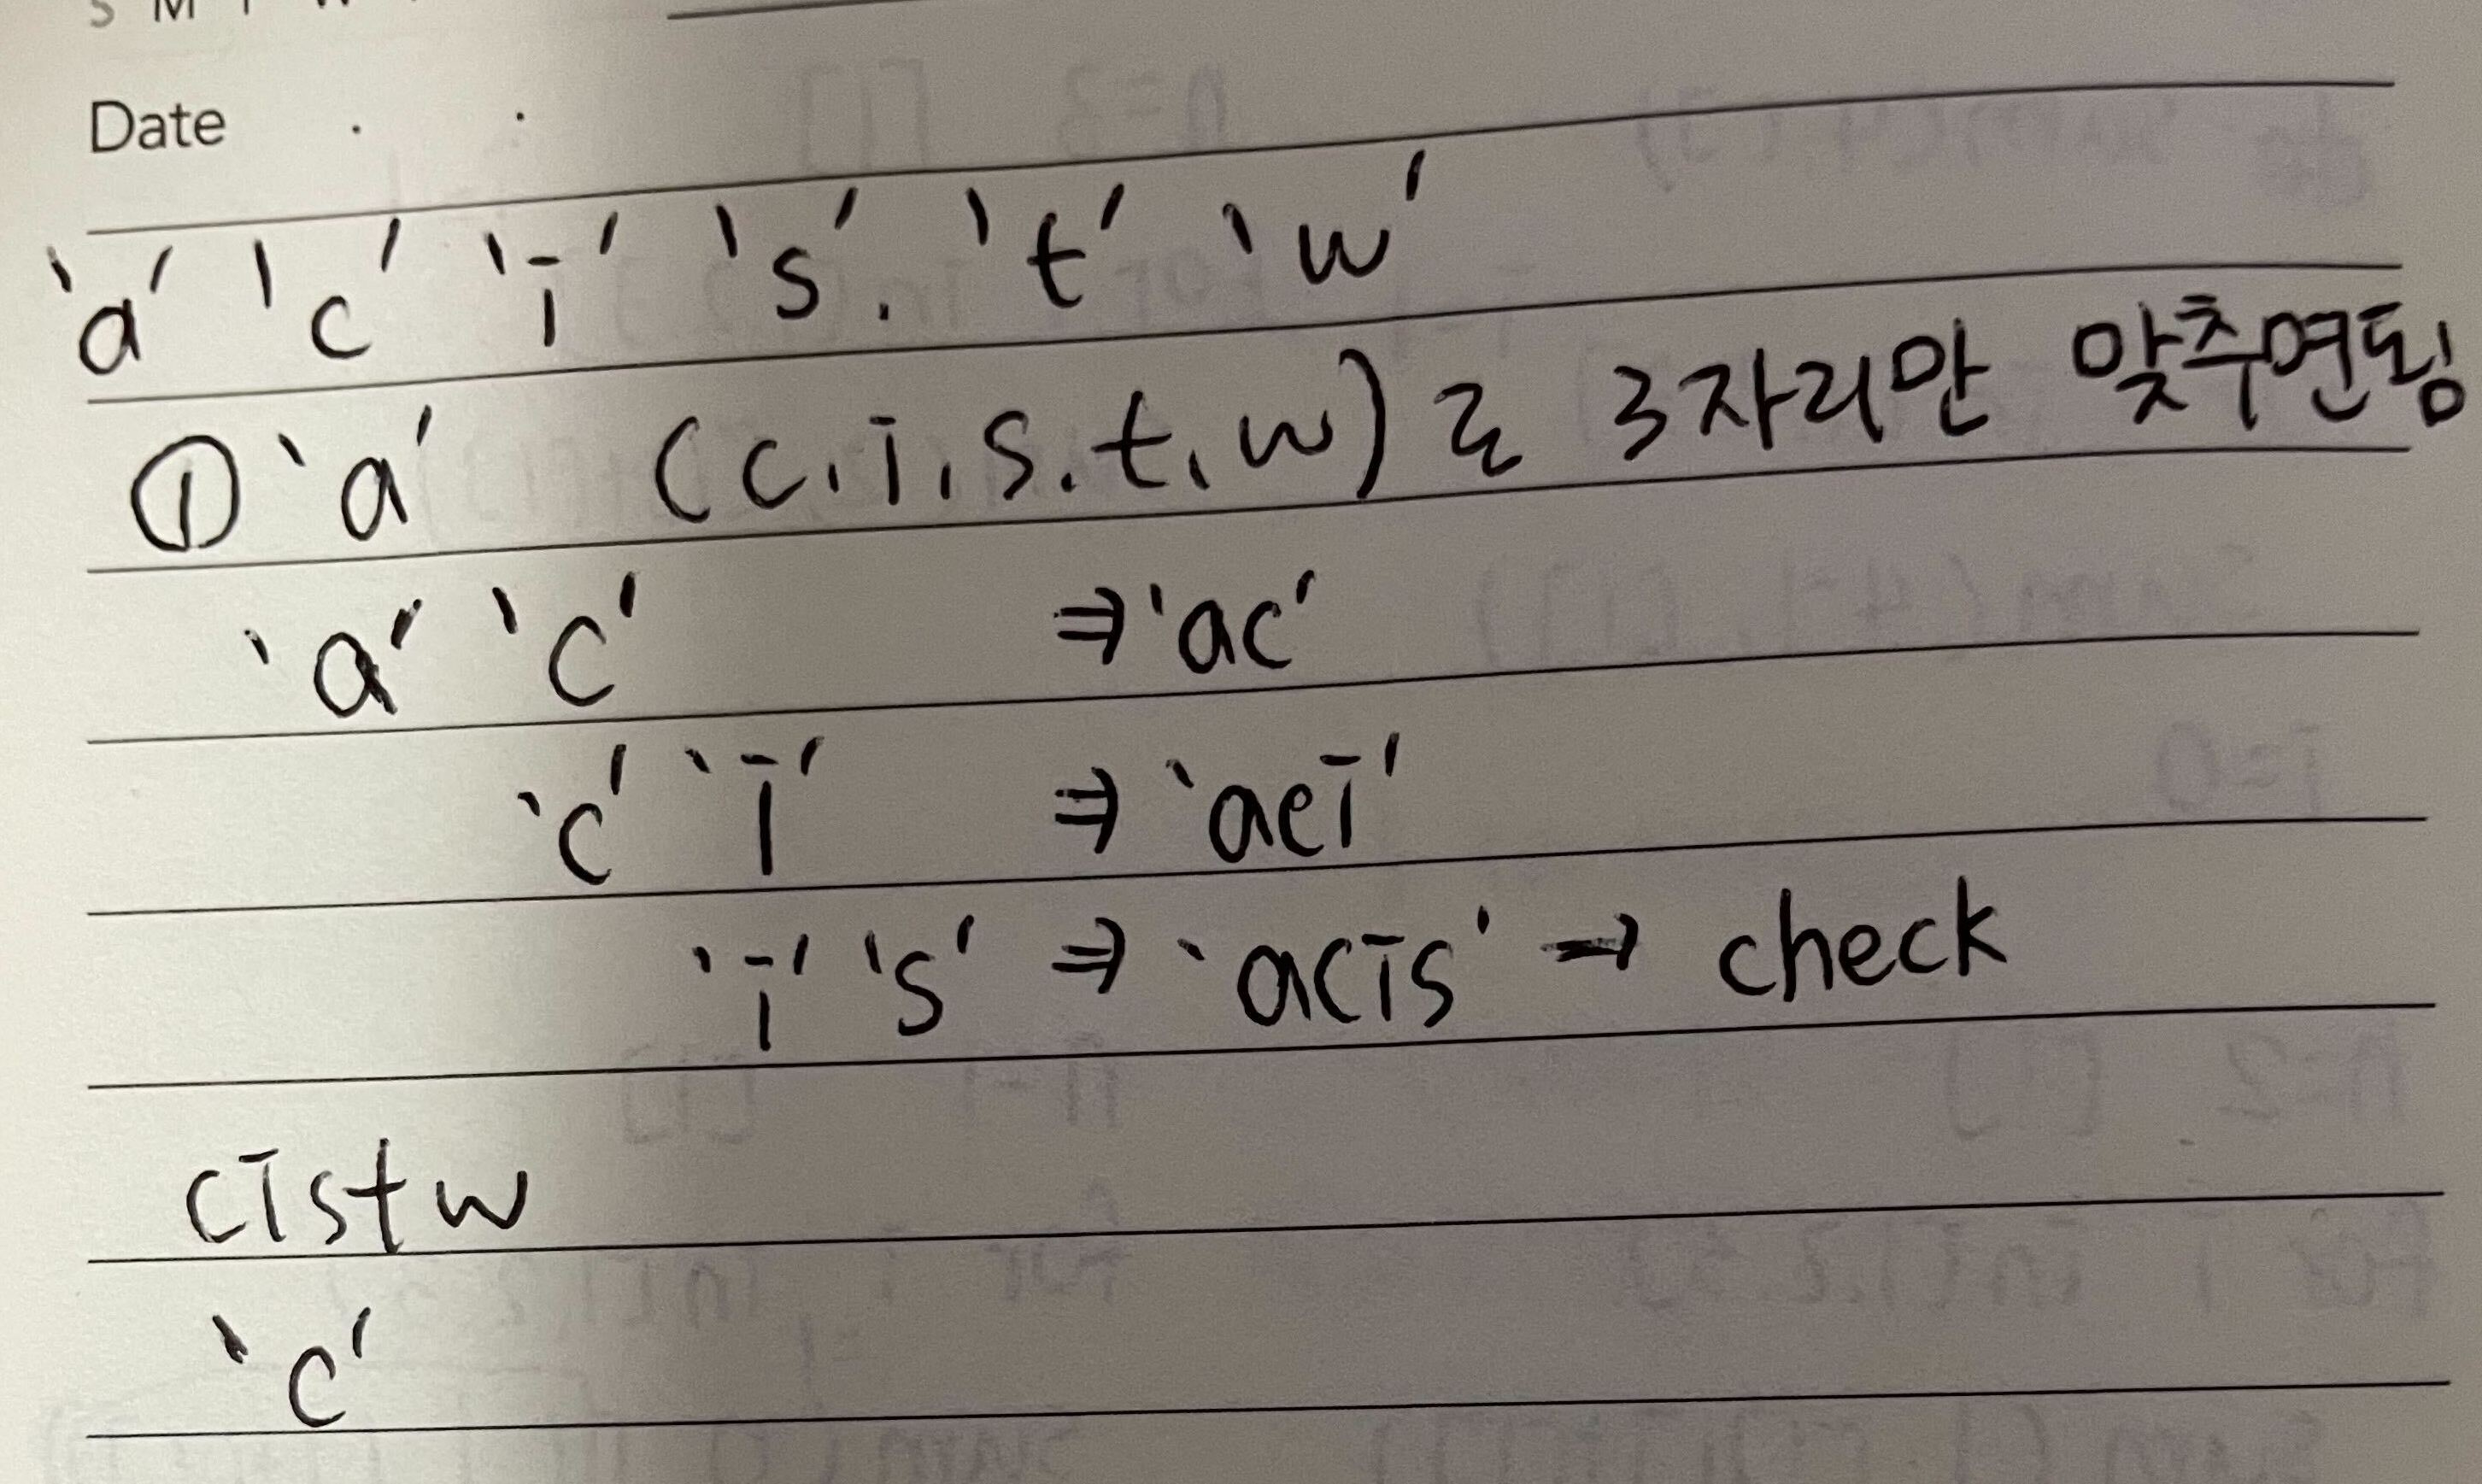 S M T W
Date . .
'a' 'c' 'i' 's'. 't' 'w'
① 'a' (c, i, s. t, w)로 3자리만 맞추면됨
'a' 'c' ⇒ 'ac'
'c' 'i' ⇒ 'aci'
'i' 's' ⇒ 'acis' → check
cistw
'c'